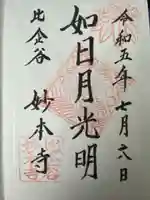 令和五年七月六日
如日月光明
比企谷
妙本寺